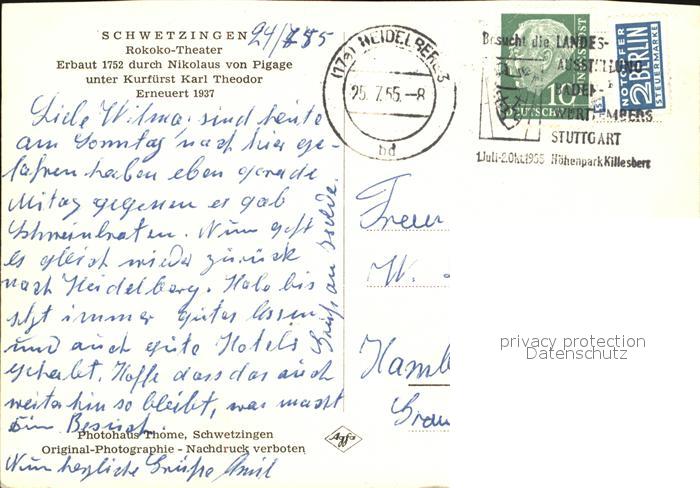 SCHWETZINGEN
Rokoko-Theater
Erbaut 1752 durch Nikolaus von Pigage
unter Kurfürst Karl Theodor
Erneuert 1937
24/7 55
Liebe Wilma: sind heute
am Sonntag nach hier ge-
fahren haben eben gerade
Mitag gegessen es gab
Schweinbraten. Nun geht
es gleich wieder zurück
nach Heidelberg. Habe bis
jetzt immer gutes Essen
und auch gute Hotels
gehabt. Hoffe dass das auch
weiterhin so bleibt, was macht
Dein Besuch.
Nun herzliche Grüße Emil
Grüße an
Photohaus Thome, Schwetzingen
Original-Photographie - Nachdruck verboten
Agfa
(17a) HEIDELBERG 3
25. 7. 55. -8
bd
Besucht die LANDES-
AUSSTELLUNG
BADEN-
WÜRTTEMBERG
STUTTGART
1.Juli-2.Okt.1955 Höhenpark Killesberg
10
DEUTSCHE BUNDESPOST
NOTOPFER
2 BERLIN
STEUERMARKE
Frau
W.
Hamb
privacy protection
Datenschutz